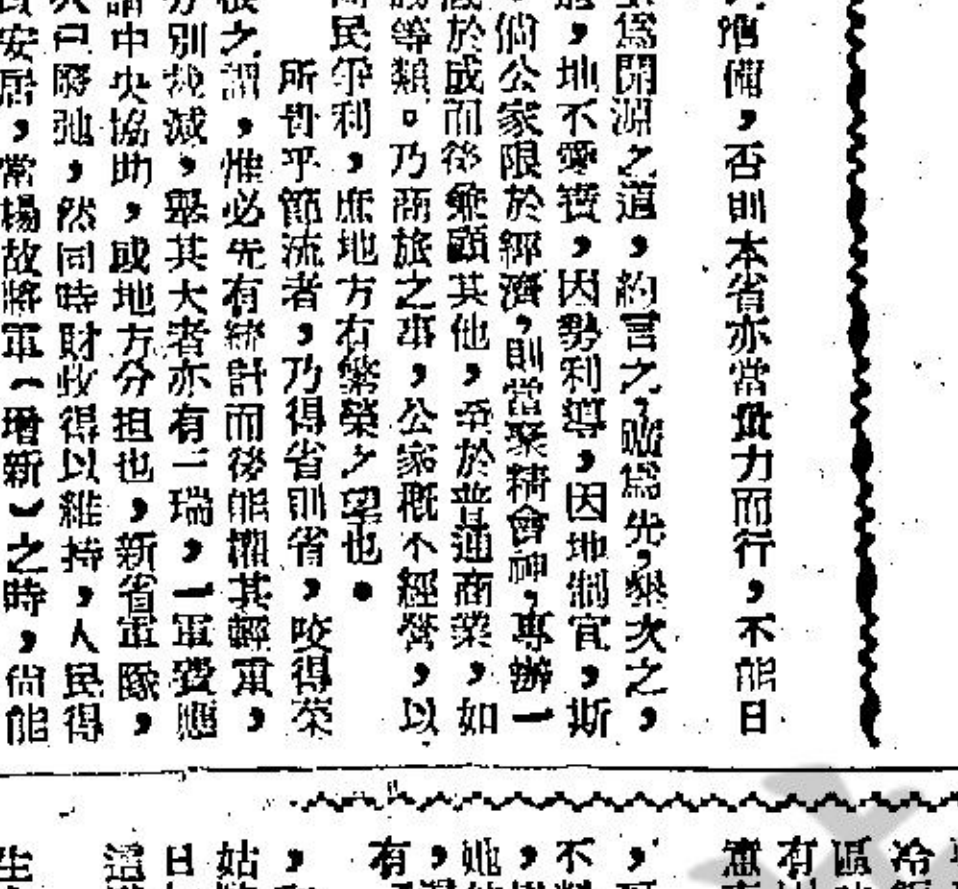 準備，否則本省亦當量力而行，不能日
為開源之道，約言之，礦為先，墾次之，
，地不愛寶，因勢利導，因地制宜，斯
，倘公家限於經濟，則當聚精會神，專辦一
於成而後兼顧其他，至於普通商業，如
等類。乃商旅之事，公家概不經營，以
民爭利，庶地方有繁榮之望也。
所謂乎節流者，乃得省則省，咬得菜
根之謂，惟必先有統計而後能權其輕重，
分別裁減，舉其大者亦有二端，一軍費應
請中央協助，或地方分担也，新省軍隊，
已廢弛，然同時財收得以維持，人民得
安居，當楊故將軍（增新）之時，尚能
冷
區
有
不
，
她
，
有
，
姑
日
這
生